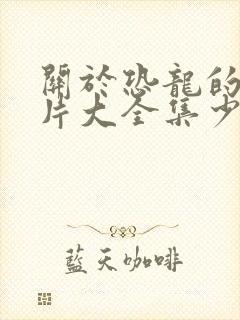 關於恐龍的
片大全集少
藍天咖啡